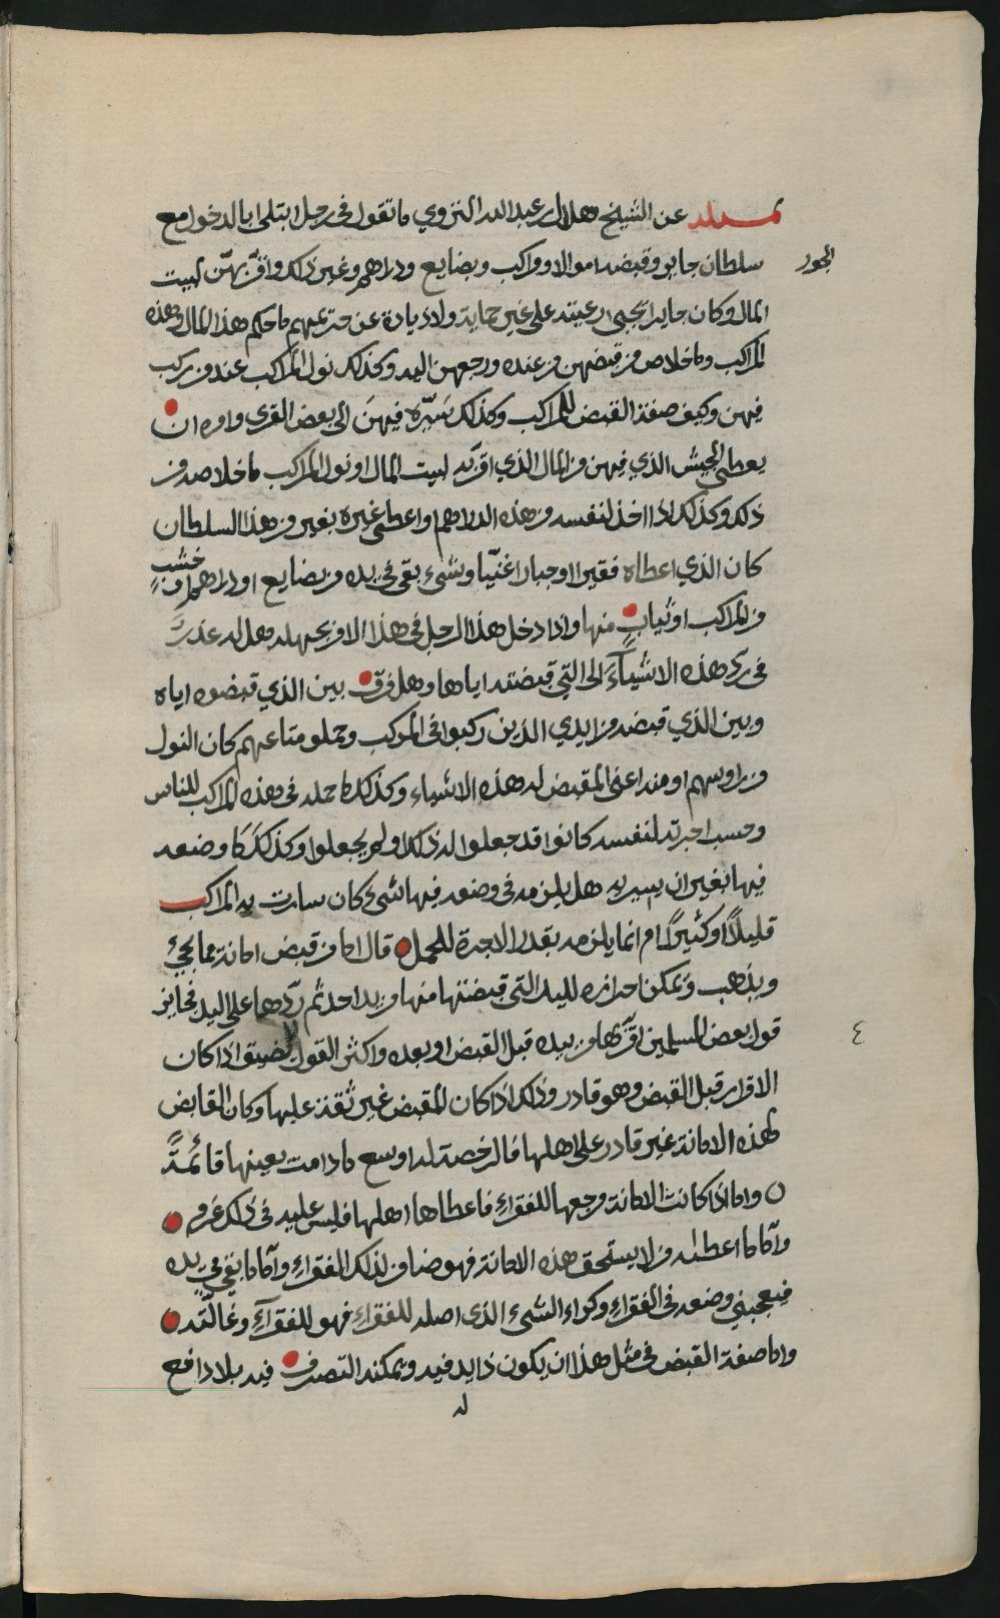 مسئلة عن الشيخ هلال بن عبد الله النزوي ما تقول في رجل ابتلى بالدخول مع
الجور
سلطان جاير وقبضه اموالا ومراكب وبضايع ودراهم وغير ذلك واقر بهن لبيت
المال وكان جايرا يجبي رعيته على غير حماية ولا زيادة عن حد عليهم ما حكم هذا المال وهذه
المراكب وما خلاص من قبضهن من عنده ورجعهن اليه وكذلك نول المراكب عند من ركب
فيهن وكيف صفة القبض للمراكب وكذلك سيّره فيهن الى بعض القرى وامره ان
يعطي الجيش الذي فيهن من المال الذي اقر به لبيت المال او نول المراكب ما خلاصه من
ذلك وكذلك اذا اخذ لنفسه من هذه الدراهم او اعطى غيره بغير من هذا السلطان
كان الذي اعطاه فقيرا او جبارا غنيّا وشيء بقي في يده من بضايع او دراهم او خشب
من المراكب او ثياب منها واذا دخل هذا الرجل في هذا الامر بجهله وهل له عذر
في رد هذه الاشيآء الى التي قبضته اياها وهل فرق بين الذي قبضوه اياه
وبين الذي قبضه من ايدي الذين ركبوا في المركب وحملو متاعهم كان النول
من اروسهم او منه اعني المقبض له هذه الاشياء وكذلك ما حمله في هذه المراكب للناس
وحسب اجرته لنفسه كانوا قد جعلوا له ذلك او لم يجعلوا وكذلك ما وضعه
فيها بغير ان يسير به هل يلزمه في وضعه فيها شيء كان سارت به المراكب
قليلاً او كثيراً ام انما يلزمه بقدر الاجرة للحمل قال اما من قبض امانة مما يجيء
ويذهب ويمكن احرازه لليد التي قبضتها منها او يد احد ثم ردها على اليد فجايز
٤
قول بعض المسلمين اقر بها من بيده قبل القبض او بعده واكثر القول لا يضيق اذا كان
الاقرار قبل القبض وهو قادر وذلك اذا كان المقبض غير ثقة عليها وكان القابض
لهذه الامانة غير قادر على اهلها فالرخصة له اوسع ما دامت بعينها قائمة
واما اذا كانت الامانة مرجعها للفقراء فاعطاها اهلها فليس عليه في ذلك غرم
وأما ما اعطاه من لا يستحق هذه الامانة فهو ضامن لذلك للفقراء وأما ما بقي في يده
فيعجبني وضعه في الفقراء وكراء الشيء الذي اصله للفقراء فهو للفقرآء وغالّته
واما صفة القبض في مثل هذا ان يكون ذا يد فيه ويمكنه التصرف فيه بلا دافع
له